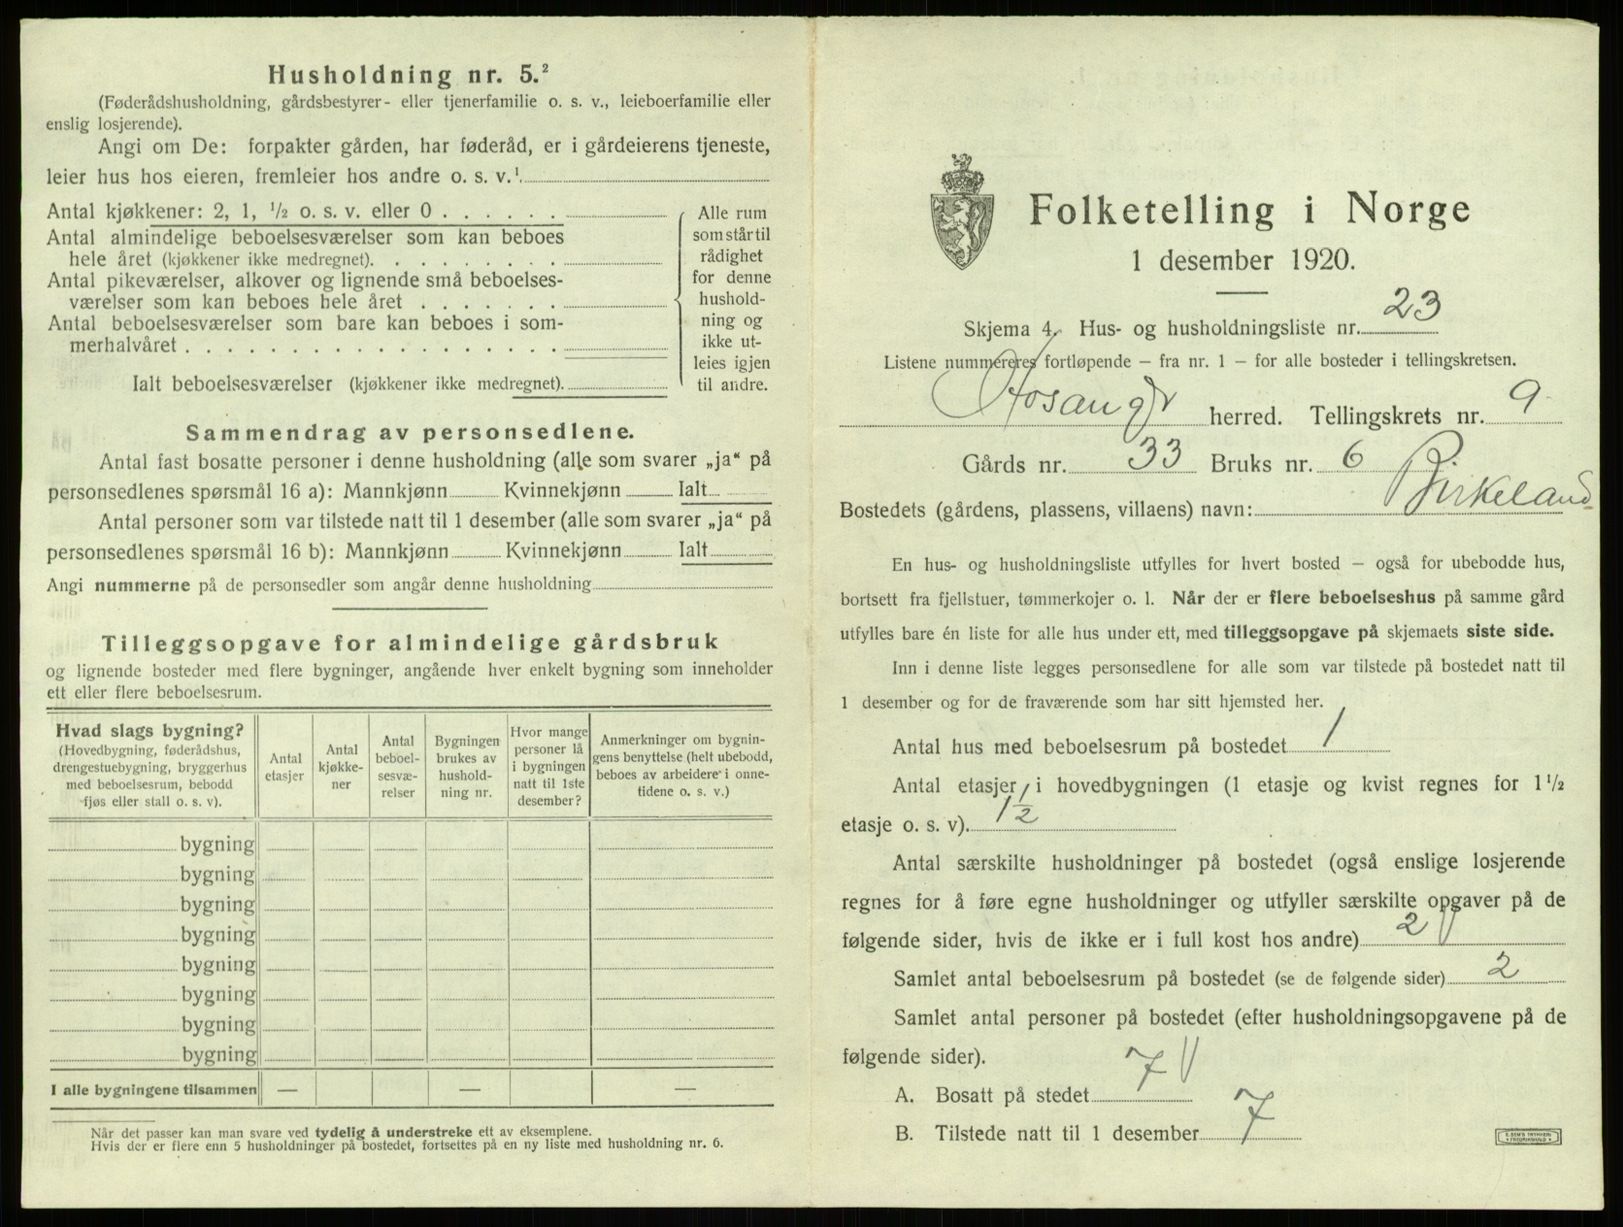 Husholdning nr. 5.²
(Føderådshusholdning, gårdsbestyrer- eller tjenerfamilie o. s. v., leieboerfamilie eller
enslig losjerende).
Angi om De: forpakter gården, har føderåd, er i gårdeierens tjeneste,
leier hus hos eieren, fremleier hos andre o. s. v.¹
Antal kjøkkener: 2, 1, ½ o. s. v. eller 0 . . . . . .
Antal almindelige beboelsesværelser som kan beboes
hele året (kjøkkener ikke medregnet). . . . . . . . .
Antal pikeværelser, alkover og lignende små beboelses-
værelser som kan beboes hele året . . . . . . .
Antal beboelsesværelser som bare kan beboes i som-
merhalvåret . . . . . . . . . . . . . . . . . .
Ialt beboelsesværelser (kjøkkener ikke medregnet).
Alle rum
som står til
rådighet
for denne
hushold-
ning og
ikke ut-
leies igjen
til andre.
Sammendrag av personsedlene.
Antal fast bosatte personer i denne husholdning (alle som svarer „ja“ på
personsedlenes spørsmål 16 a): Mannkjønn Kvinnekjønn Ialt
Antal personer som var tilstede natt til 1 desember (alle som svarer „ja“ på
personsedlenes spørsmål 16 b): Mannkjønn Kvinnekjønn Ialt
Angi nummerne på de personsedler som angår denne husholdning
Tilleggsopgave for almindelige gårdsbruk
og lignende bosteder med flere bygninger, angående hver enkelt bygning som inneholder
ett eller flere beboelsesrum.
Hvad slags bygning?
(Hovedbygning, føderådshus,
drengestuebygning, bryggerhus
med beboelsesrum, bebodd
fjøs eller stall o. s. v).
Antal
etasjer
Antal
kjøkke-
ner
Antal
beboel-
sesvæ-
relser
Bygningen
brukes av
hushold-
ning nr.
Hvor mange
personer lå
i bygningen
natt til 1ste
desember?
Anmerkninger om bygnin-
gens benyttelse (helt ubebodd,
beboes av arbeidere i onne-
tidene o. s. v.)
bygning
bygning
bygning
bygning
bygning
bygning
bygning
bygning
I alle bygningene tilsammen — — —
Når det passer kan man svare ved tydelig å understreke ett av eksemplene.
Hvis der er flere enn 5 husholdninger på bostedet, fortsettes på en ny liste med husholdning nr. 6.
Folketelling i Norge
1 desember 1920.
Skjema 4. Hus- og husholdningsliste nr. 23
Listene nummereres fortløpende — fra nr. 1 — for alle bosteder i tellingskretsen.
Hosangr herred. Tellingskrets nr. 9
Gårds nr. 33 Bruks nr. 6
Bostedets (gårdens, plassens, villaens) navn: Birkeland
En hus- og husholdningsliste utfylles for hvert bosted — også for ubebodde hus,
bortsett fra fjellstuer, tømmerkojer o. l. Når der er flere beboelseshus på samme gård
utfylles bare én liste for alle hus under ett, med tilleggsopgave på skjemaets siste side.
Inn i denne liste legges personsedlene for alle som var tilstede på bostedet natt til
1 desember og for de fraværende som har sitt hjemsted her.
Antal hus med beboelsesrum på bostedet 1
Antal etasjer i hovedbygningen (1 etasje og kvist regnes for 1½
etasje o. s. v). 1½
Antal særskilte husholdninger på bostedet (også enslige losjerende
regnes for å føre egne husholdninger og utfyller særskilte opgaver på de
følgende sider, hvis de ikke er i full kost hos andre) 2
Samlet antal beboelsesrum på bostedet (se de følgende sider) 2
Samlet antal personer på bostedet (efter husholdningsopgavene på de
følgende sider).
A. Bosatt på stedet 7
B. Tilstede natt til 1 desember 7